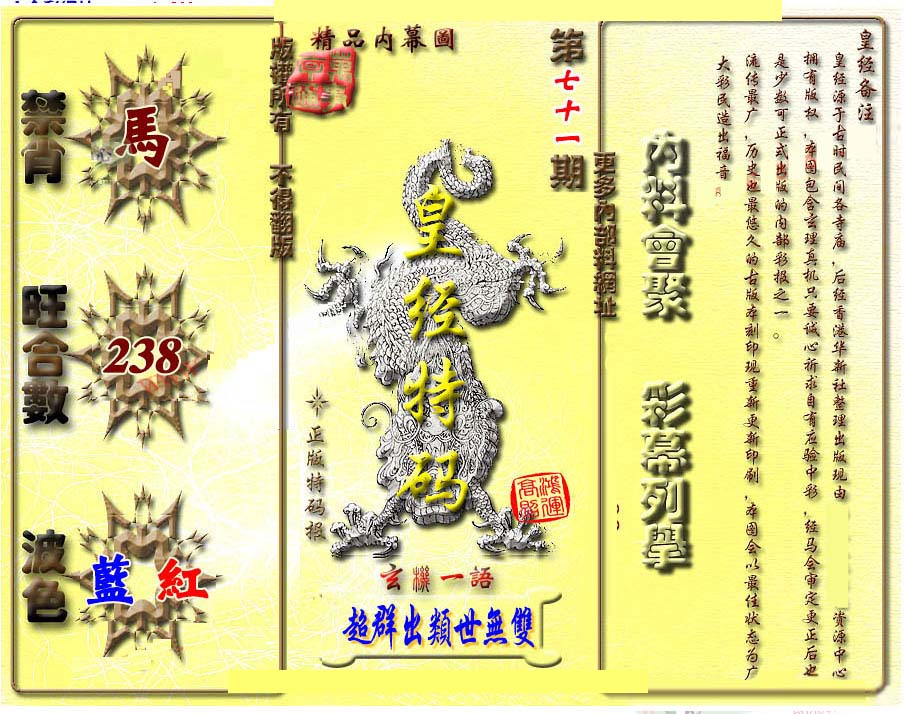 精品内幕圖
版權所有 不得翻版
第七十一期
更多內部料網址
禁肖
馬
旺合數
238
波色
藍 紅
皇经特码
正版特码报
鴻運高照
玄機一語
超群出類世無雙
內料會聚 彩幕列舉
皇经备注
皇经源于古时民间各寺庙，后经香港华新社整理出版现由 资源中心
拥有版权，本图包含玄理真机只要诚心祈求自有应验中彩，经马会审定更正后也
是少数可正式出版的内部彩报之一。
流传最广，历史也最悠久的古版本刻印现重新更新印刷，本图会以最佳状态为广
大彩民造出福音